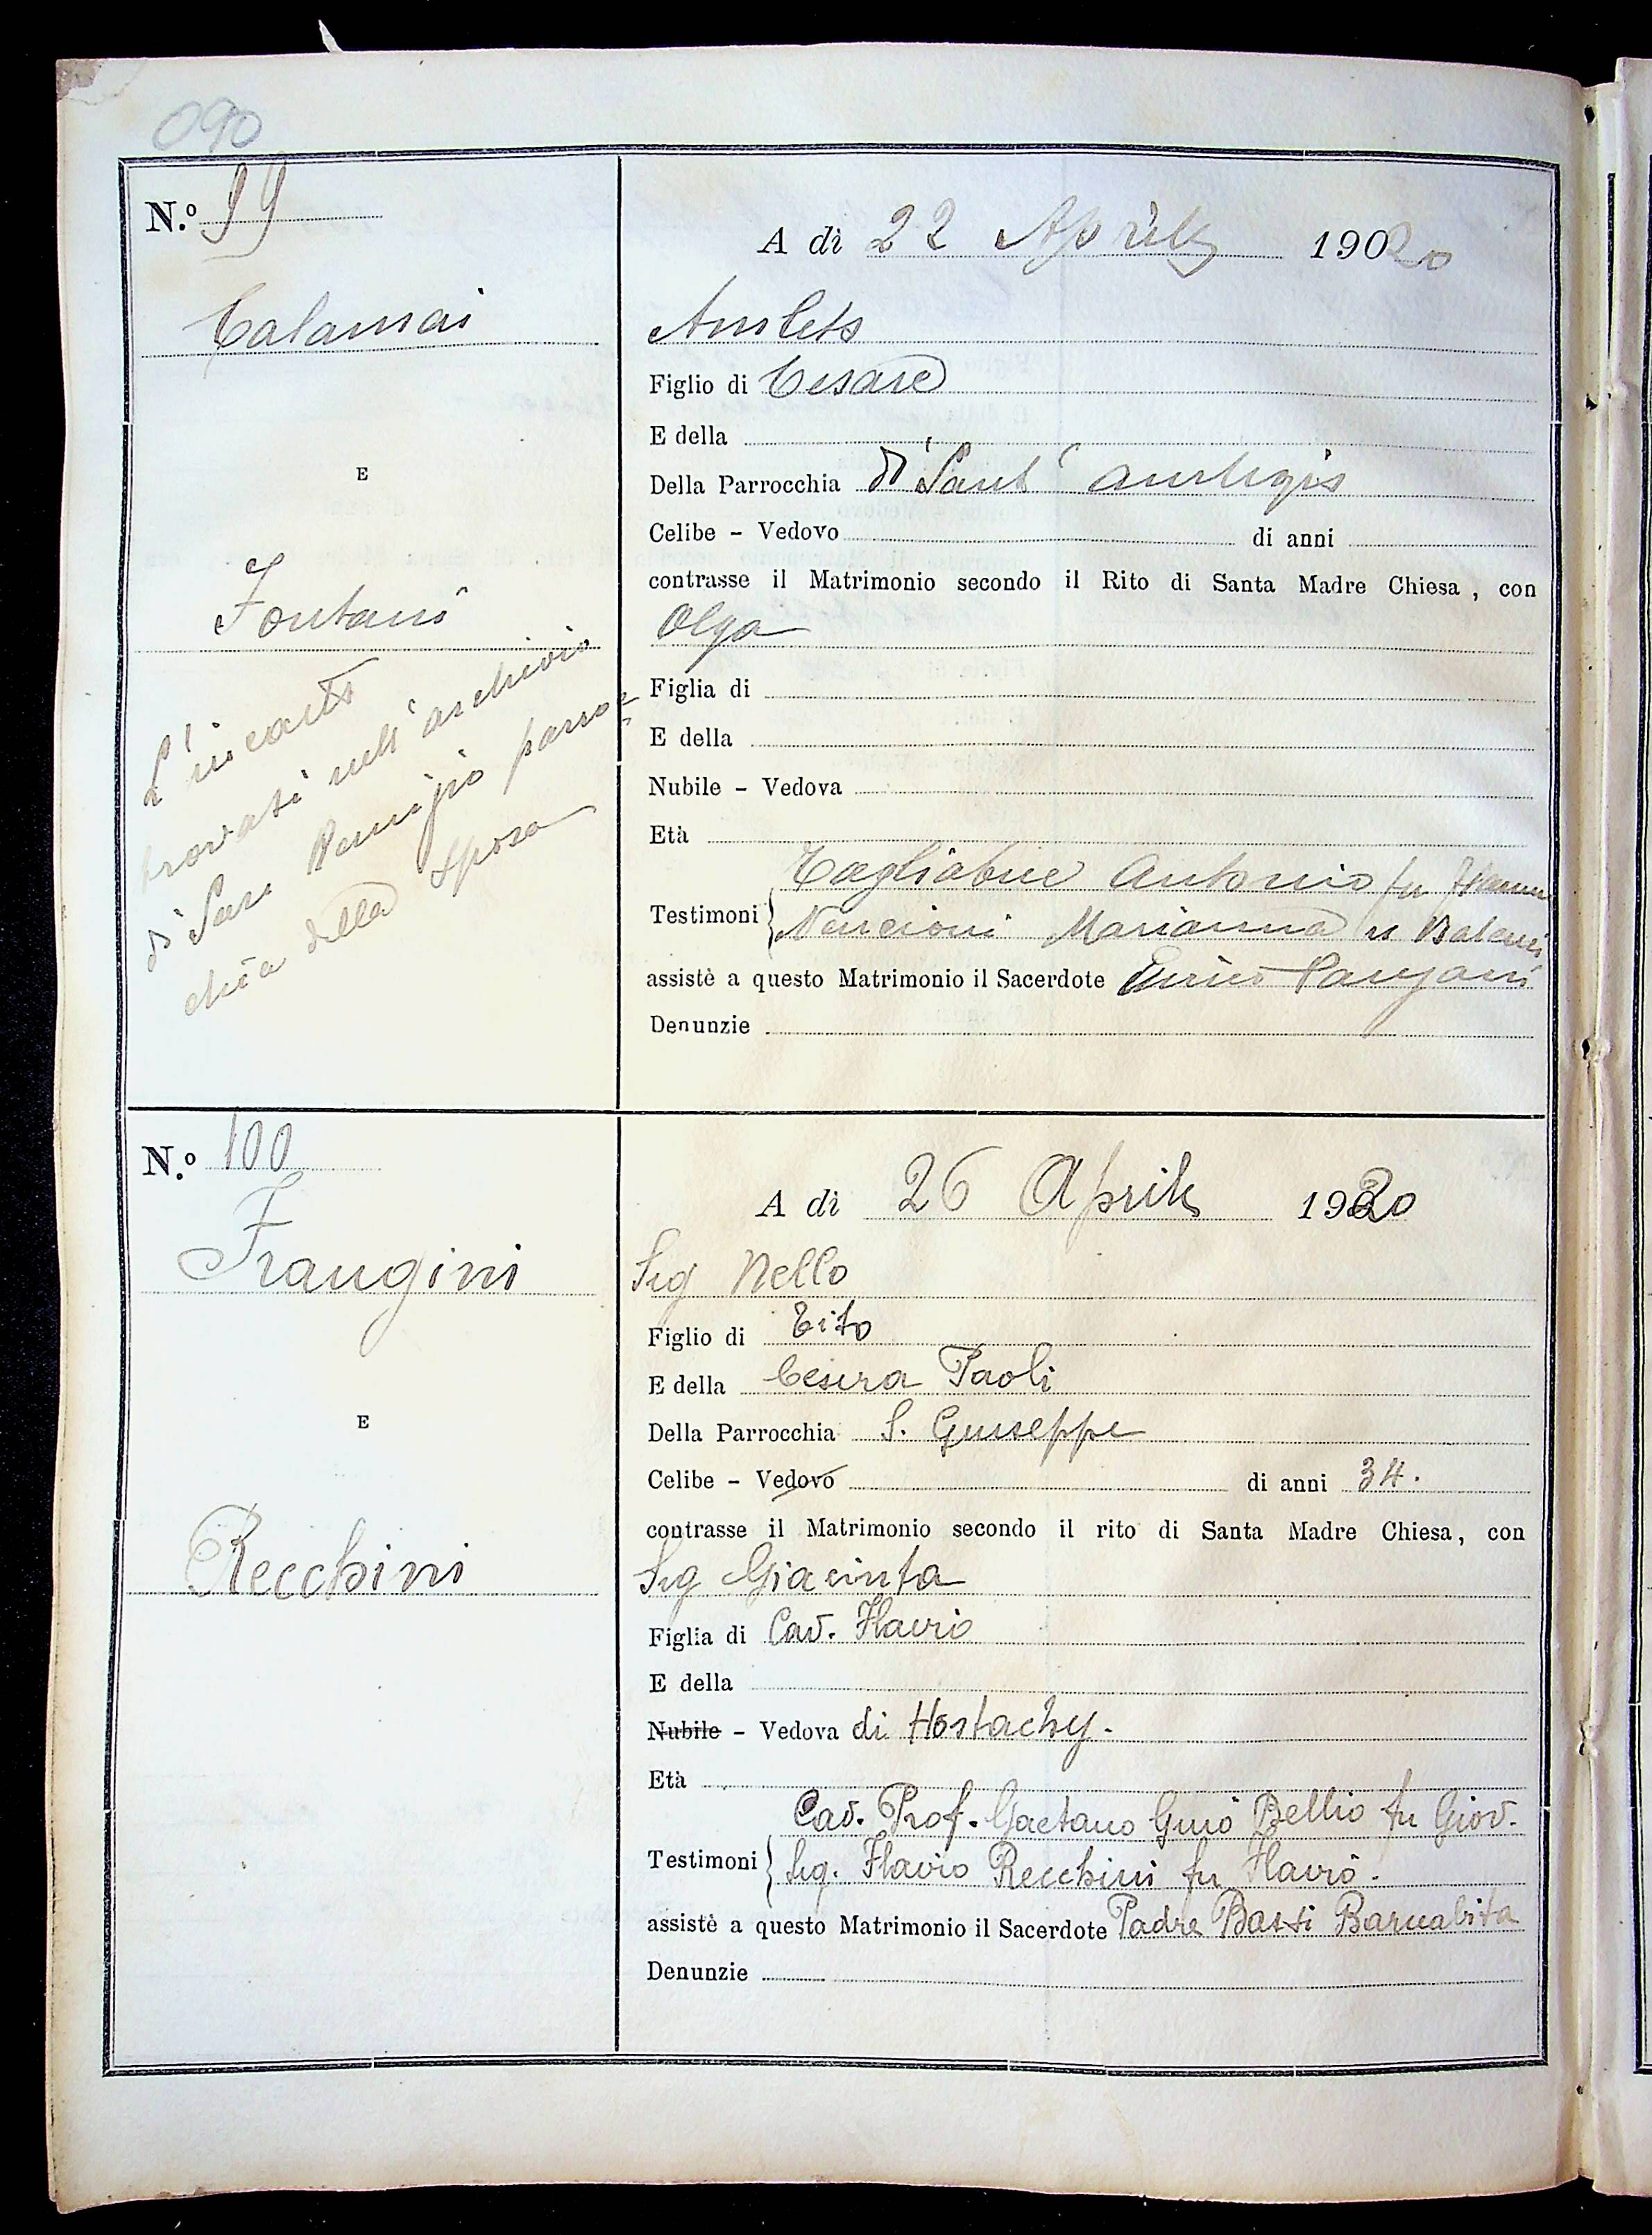 090
N.º 99
Calamai
E
Fontani
L'incarto
trovasi nell'archivio
di San Remigio parro=
chia della sposa
A dì 22 Aprile 1920
Amleto
Figlio di Cesare
E della
Della Parrocchia di Sant'
Celibe - Vedovo di anni
contrasse il Matrimonio secondo il Rito di Santa Madre Chiesa, con
Olga
Figlia di
E della
Nubile - Vedova
Età
Tagliabue Antonio fu
Testimoni Nencioni Marianna
assistè a questo Matrimonio il Sacerdote Enrico
Denunzie
N.º 100
Frangini
E
Recchini
A dì 26 Aprile 1920
Sig Nello
Figlio di Tito
E della Cesira Paoli
Della Parrocchia S. Giuseppe
Celibe - Vedovo di anni 34.
contrasse il Matrimonio secondo il rito di Santa Madre Chiesa, con
Sig Giacinta
Figlia di Cav. Flavio
E della
Nubile - Vedova di Hostachy.
Età
Cav. Prof. Gaetano Bellio fu Giov.
Testimoni Sig. Flavio Recchini fu Flavio.
assistè a questo Matrimonio il Sacerdote Padre Bassi Barnabita
Denunzie